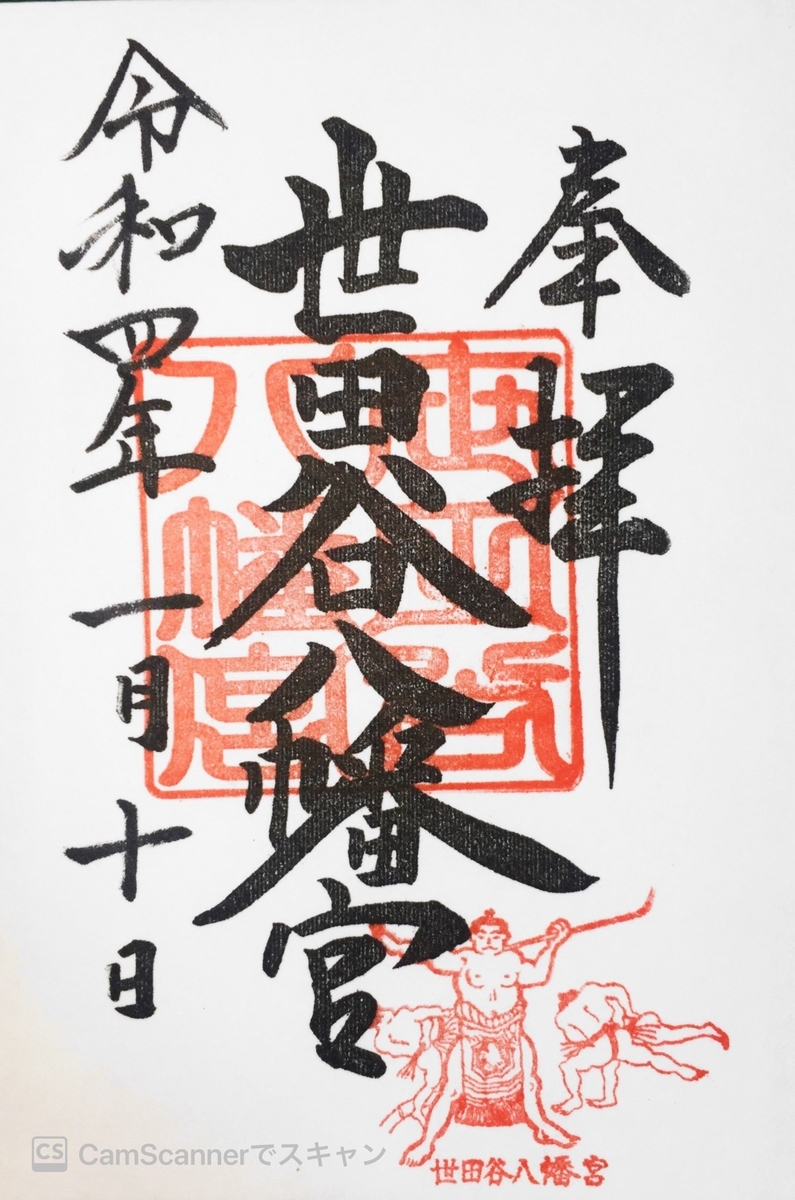 奉拝
世田谷八幡宮
令和四年一月十日
世田谷八幡宮
世田谷八幡宮
CS CamScannerでスキャン